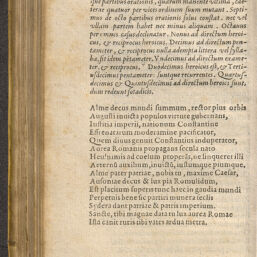 que partibus orationis, quarum manente vltima, cæ-
teræ quatuor per vices ordinum suum mutant. Septi-
mus de octo partibus orationis solus constat. nec vel
vllam partem habet nec minus aliquam. Octauus
per omnes casus declinatur. Nonus ad directum heroi-
cus, & reciprocus heroicus. Decimus ad directum pen-
tameter, & reciprocus nulla adempta littera vel sylla-
ba, fit idem pentameter. Vndecimus ad directum exame-
ter, & reciprocus. Duodecimus heroicus est, & Terti-
us decimus pentameter: suntque recurrentes. Quartus-
decimus & Quintusdecimus ad directum heroici sunt,
dum redeunt sotadicis.
Alme decus mundi summum, rector pius orbis
Augusti inuicta populos virtute gubernans,
Iustitia imperii, nationum Constantine
Et senatorum moderamine pacificator,
Quem diuus genuit Constantius induperator,
Aurea Romanis propagans secula nato
Heu nimis ad cœlum properas, ne linqueret illi
Aeterni austibum, inuicto, iustumque piumque,
Alme pater patriae, nobis tu, maxime Caesar,
Ausoniae decus & lux pia Romulidum,
Est placitum superis tunc haec in gaudia mundi
Perpetuis bene sic partiri munera seclis
Sydera dant patriae & patris imperium.
Sancte, tibi magnae data in lux aurea Romae
Ista canit ruris tibi vates ardua metra.